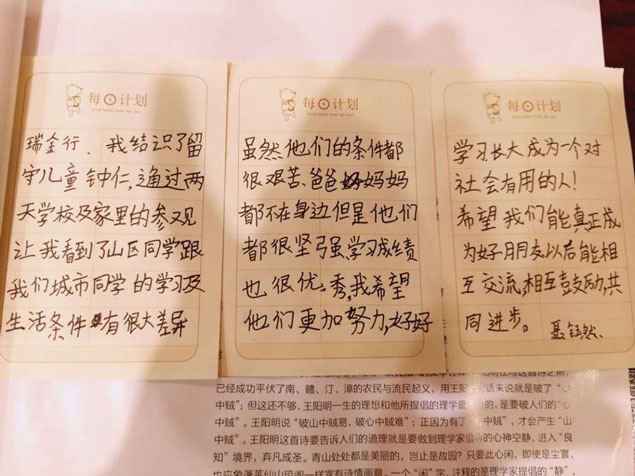 每日计划
瑞金行、我结识了留
守儿童钟仁,通过两
天学校及家里的参观
让我看到了山区同学跟
我们城市同学的学习及
生活条件有很大差异
每日计划
虽然他们的条件都
很艰苦、爸爸妈妈
都不在身边但是他们
都很坚强,学习成绩
也很优秀,我希望
他们更加努力,好好
每日计划
学习长大成为一个对
社会有用的人!
希望我们能真正成
为好朋友以后能相
互交流,相互鼓励,共
同进步。
已经成功平伏了南、赣、汀、漳的农民与流民起义,用王
中贼";但这还不够,王阳明一生的理想和他所提倡的理学
中贼"。王阳明说"破山中贼易,破心中贼难";正因为有了
贼"。王阳明这首诗要告诉人们的道理就是要做到理学家倡
知"境界,弃凡成圣。青山处处都是美丽的,岂止是故园?只要此心闲,即使是尘寰,